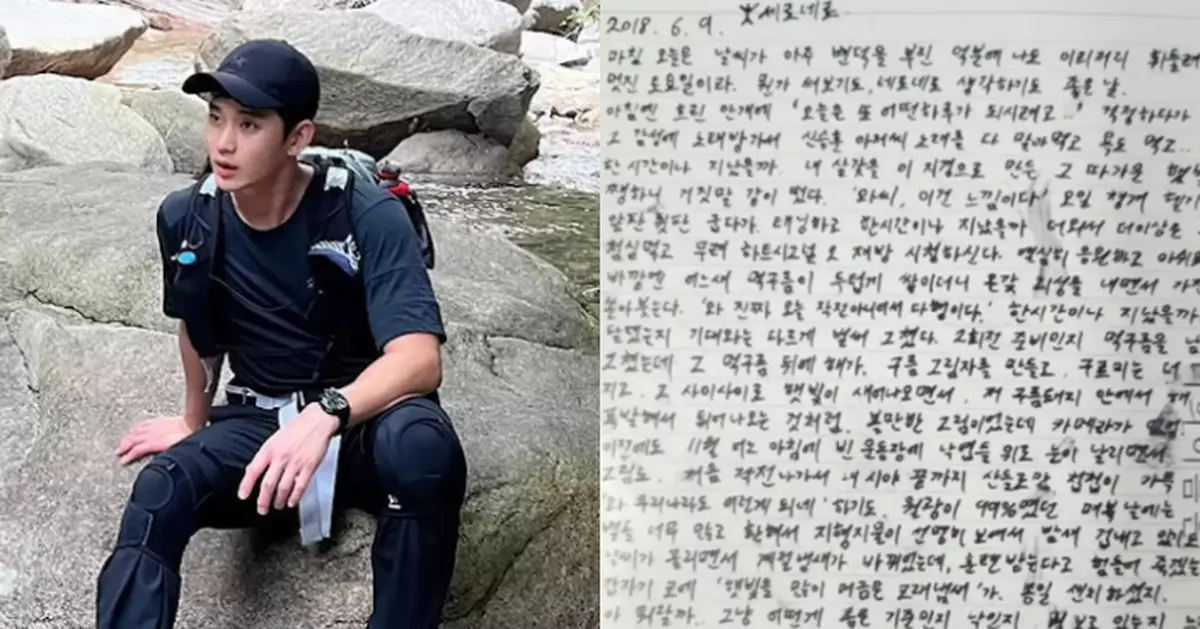 2018. 6. 9. 세로네로
마침 오늘은 날씨가 아주 변덕을 부린 덕분에 나도 이리저리 휘둘려
멋진 토요일이라. 뭔가 써보기도, 세로네로 생각하기도 좋은 날.
아침엔 흐린 안개에 '오늘은 또 어떤하루가 되시려고..' 걱정하다가
그 감성에 노래방가서 신승훈 아저씨 노래를 다 말아먹고 욕도 먹고..
한시간이나 지났을까. 내 살갗을 이 지경으로 만든 그 따가운 햇빛
쨍하니 거짓말 같이 떴다. '와씨, 이건 느낌이다' 오일 챙겨
앞판 뒷판 굽다가. 태닝하고 한시간이나 지났을까 더워서 더이상은
점심먹고 무려 하트시그널 2 재방 시청하신다. 열심히 응원하고 아쉬워
바깥엔 어느새 먹구름이 두껍게 쌓이더니 온갖 괴성을 내면서
쏟아붓는다. '와 진짜 오늘 작전아니어서 다행이다.' 한시간이나 지났을까
달랬는지 기대와는 다르게 벌써 그쳤다. 2회전 준비인지 먹구름을 남
그쳤는데 그 먹구름 뒤에 해가. 구름 그림자를 만들고, 구르미는 더
지고, 그 사이사이로 햇빛이 새어나오면서, 저 구름돼지 안에서 해
폭발해서 튀어나오는 것처럼. 볼만한 그림이었는데 카메라가 없어
이전에도 11월 어느 아침에 빈 운동장에 낙엽들 위로 눈이 날리면서
그림도. 처음 작전나가서 내 시야 끝까지 산들로만 첩첩이 가득
'와 우리나라도 이렇게 되네' 하기도. 월광이 99%였던 매복 날에는
별들 너무 많고 환해서 지형지물이 선명히 보여서 밤새 겁내고 있기도
날씨가 풀리면서 계절냄새가 바뀌었는데, 훈련 받는다고 힘들어 죽겠는
갑자기 코에 '햇빛을 많이 머금은 모래냄새'가. 종일 센치하셨지.
아 뭐랄까.. 그냥 어떻게 좋은 기준인지 낙인지,